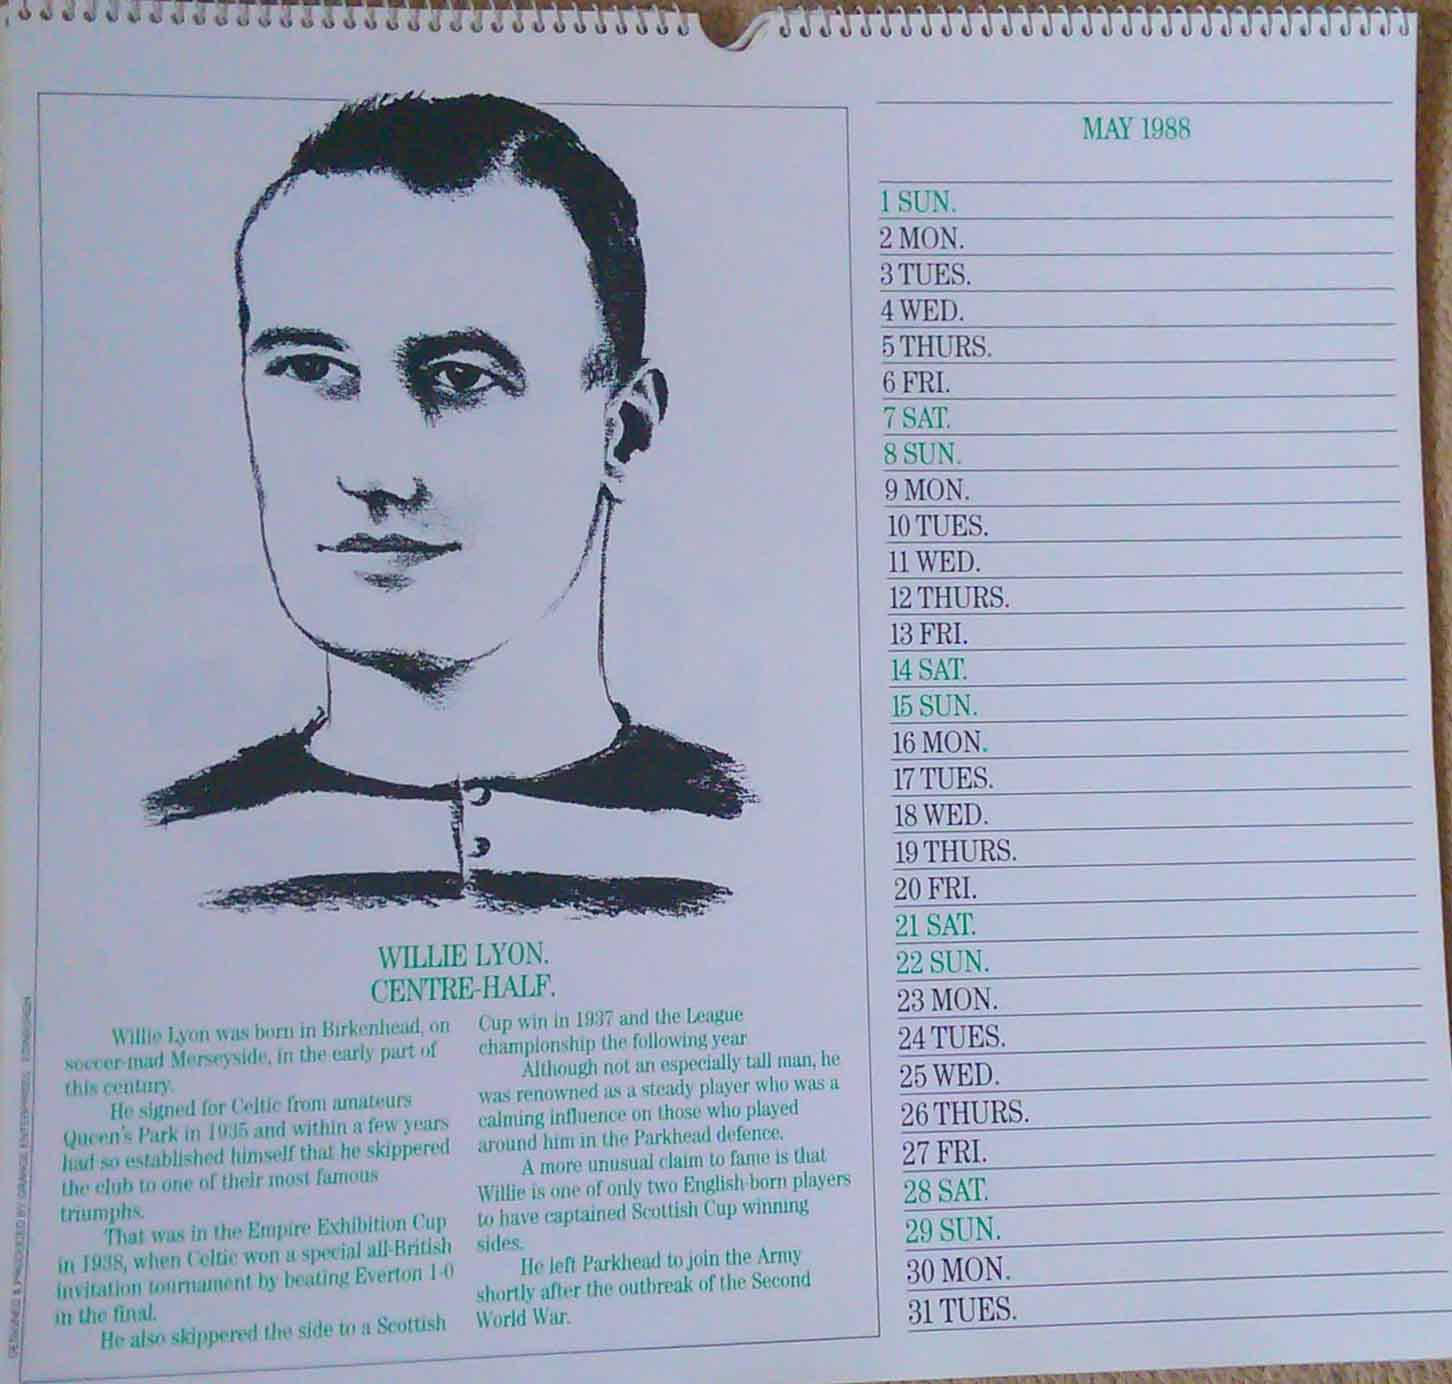 WILLIE LYON.
CENTRE-HALF.
Willie Lyon was born in Birkenhead, on
soccer-mad Merseyside, in the early part of
this century.
He signed for Celtic from amateurs
Queen's Park in 1935 and within a few years
had so established himself that he skippered
the club to one of their most famous
triumphs.
That was in the Empire Exhibition Cup
in 1938, when Celtic won a special all-British
invitation tournament by beating Everton 1-0
in the final.
He also skippered the side to a Scottish
Cup win in 1937 and the League
championship the following year
Although not an especially tall man, he
was renowned as a steady player who was a
calming influence on those who played
around him in the Parkhead defence.
A more unusual claim to fame is that
Willie is one of only two English-born players
to have captained Scottish Cup winning
sides.
He left Parkhead to join the Army
shortly after the outbreak of the Second
World War.
DESIGNED & PRODUCED BY GRANGE ENTERPRISES, EDINBURGH
MAY 1988
1 SUN.
2 MON.
3 TUES.
4 WED.
5 THURS.
6 FRI.
7 SAT.
8 SUN.
9 MON.
10 TUES.
11 WED.
12 THURS.
13 FRI.
14 SAT.
15 SUN.
16 MON.
17 TUES.
18 WED.
19 THURS.
20 FRI.
21 SAT.
22 SUN.
23 MON.
24 TUES.
25 WED.
26 THURS.
27 FRI.
28 SAT.
29 SUN.
30 MON.
31 TUES.